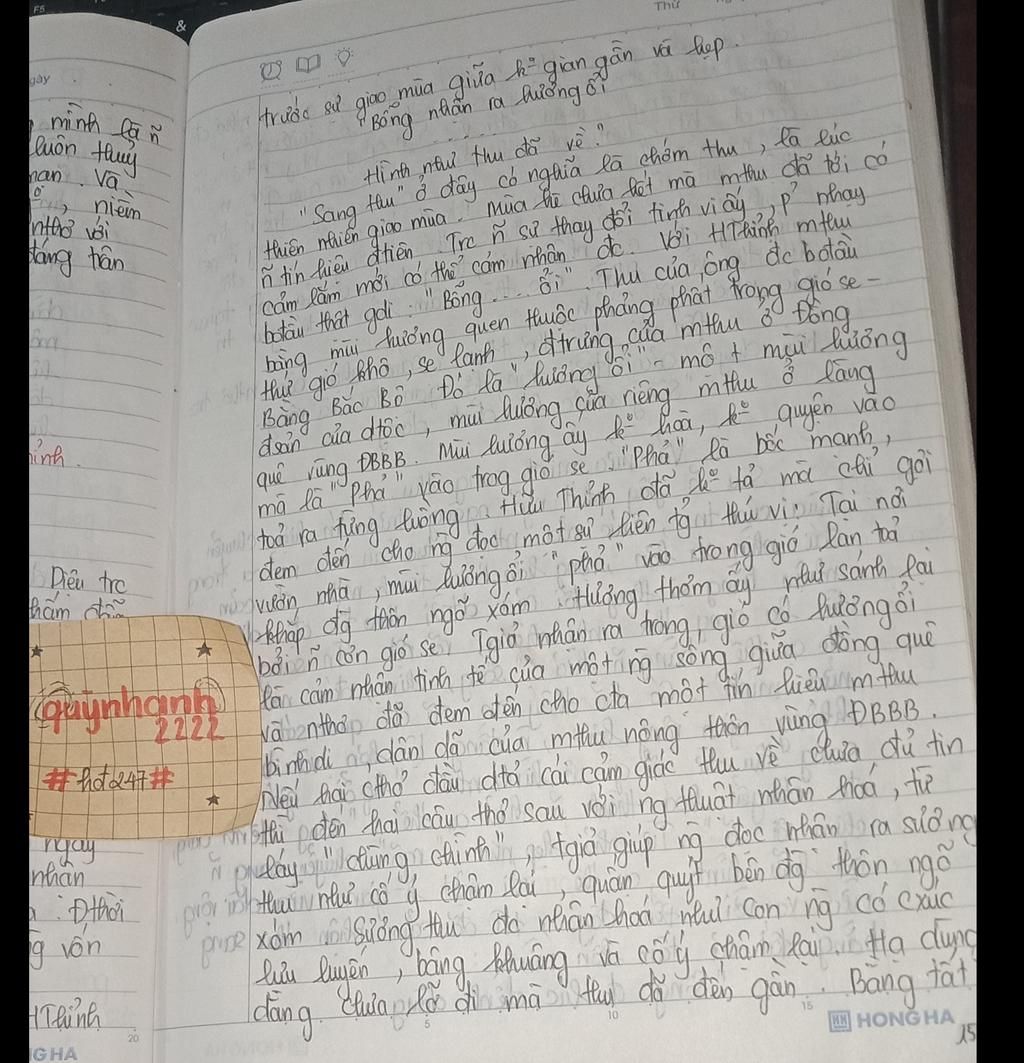 F5
&
Thứ
gày
mình là ñ
luôn thuỷ
nan. Và
niềm
nthơ với
tảng trân
Diêu trc
thấm
quỳnhanh
2222
#hot247#
ngay
nhân
Đthời
g vốn
HThỉnh
20
GHA
trước sự giao mùa giữa k° gian gần và hẹp.
"Bỗng nhận ra hương ổi
Hình như thu đã về."
"Sang thu" ở đây có nghĩa là chớm thu, là lúc
thiên nhiên giao mùa. Mùa hè chưa hết mà mthu đã tới có
ñ tín hiệu đtiên. Trc ñ sự thay đổi tinh vi ấy, p² nhạy
cảm lắm mới có thể cảm nhận đc. Với HThỉnh mthu
bđầu thật gdị: "Bỗng ... ổi". Thu của ông đc bđầu
bằng mùi hương quen thuộc phảng phất trong gió se -
thứ gió khô, se lạnh, đtrưng của mthu ở Đồng
Bằng Bắc Bộ. Đó là "hương ổi" - một mùi hương
đsản của dtộc, mùi hương của riêng mthu ở làng
quê vùng ĐBBB. Mùi hương ấy k° hoà, k° quyện vào
mà là "Phả" vào trog gió se. "Phả" là bốc mạnh,
toả ra từng luồng. Hữu Thỉnh đã k° tả mà chỉ gợi
đem đến cho ng đọc một sự liên tg thú vị: Tại nơi
vườn, nhà, mùi hương ổi "phả" vào trong gió lan toả
khắp đg thôn ngõ xóm. Hương thơm ấy như sánh lại
bởi ñ cơn gió se. Tgiả nhận ra trong gió có hương ổi
là cảm nhận tinh tế của một ng sống giữa đồng quê
và nthơ đã đem đến cho cta một tín hiệu mthu
bình dị, dân dã của mthu nông thôn vùng ĐBBB.
Nếu hai cthơ đầu dtả cái cảm giác thu về chưa đủ tin
thì đến hai câu thơ sau với ng thuật nhân hoá, từ
láy "chùng chình", tgiả giúp ng đọc nhận ra sương
thu như cố ý chậm lại, quấn quýt bên đg thôn ngõ
xóm. Sương thu đc nhân hoá như con ng có cxúc
lưu luyến, bâng khuâng và cố ý chậm lại. Hạ dùng
dằng chưa lỡ đi mà thu đã đến gần. Bằng tất
5
10
15
HONG HA
15